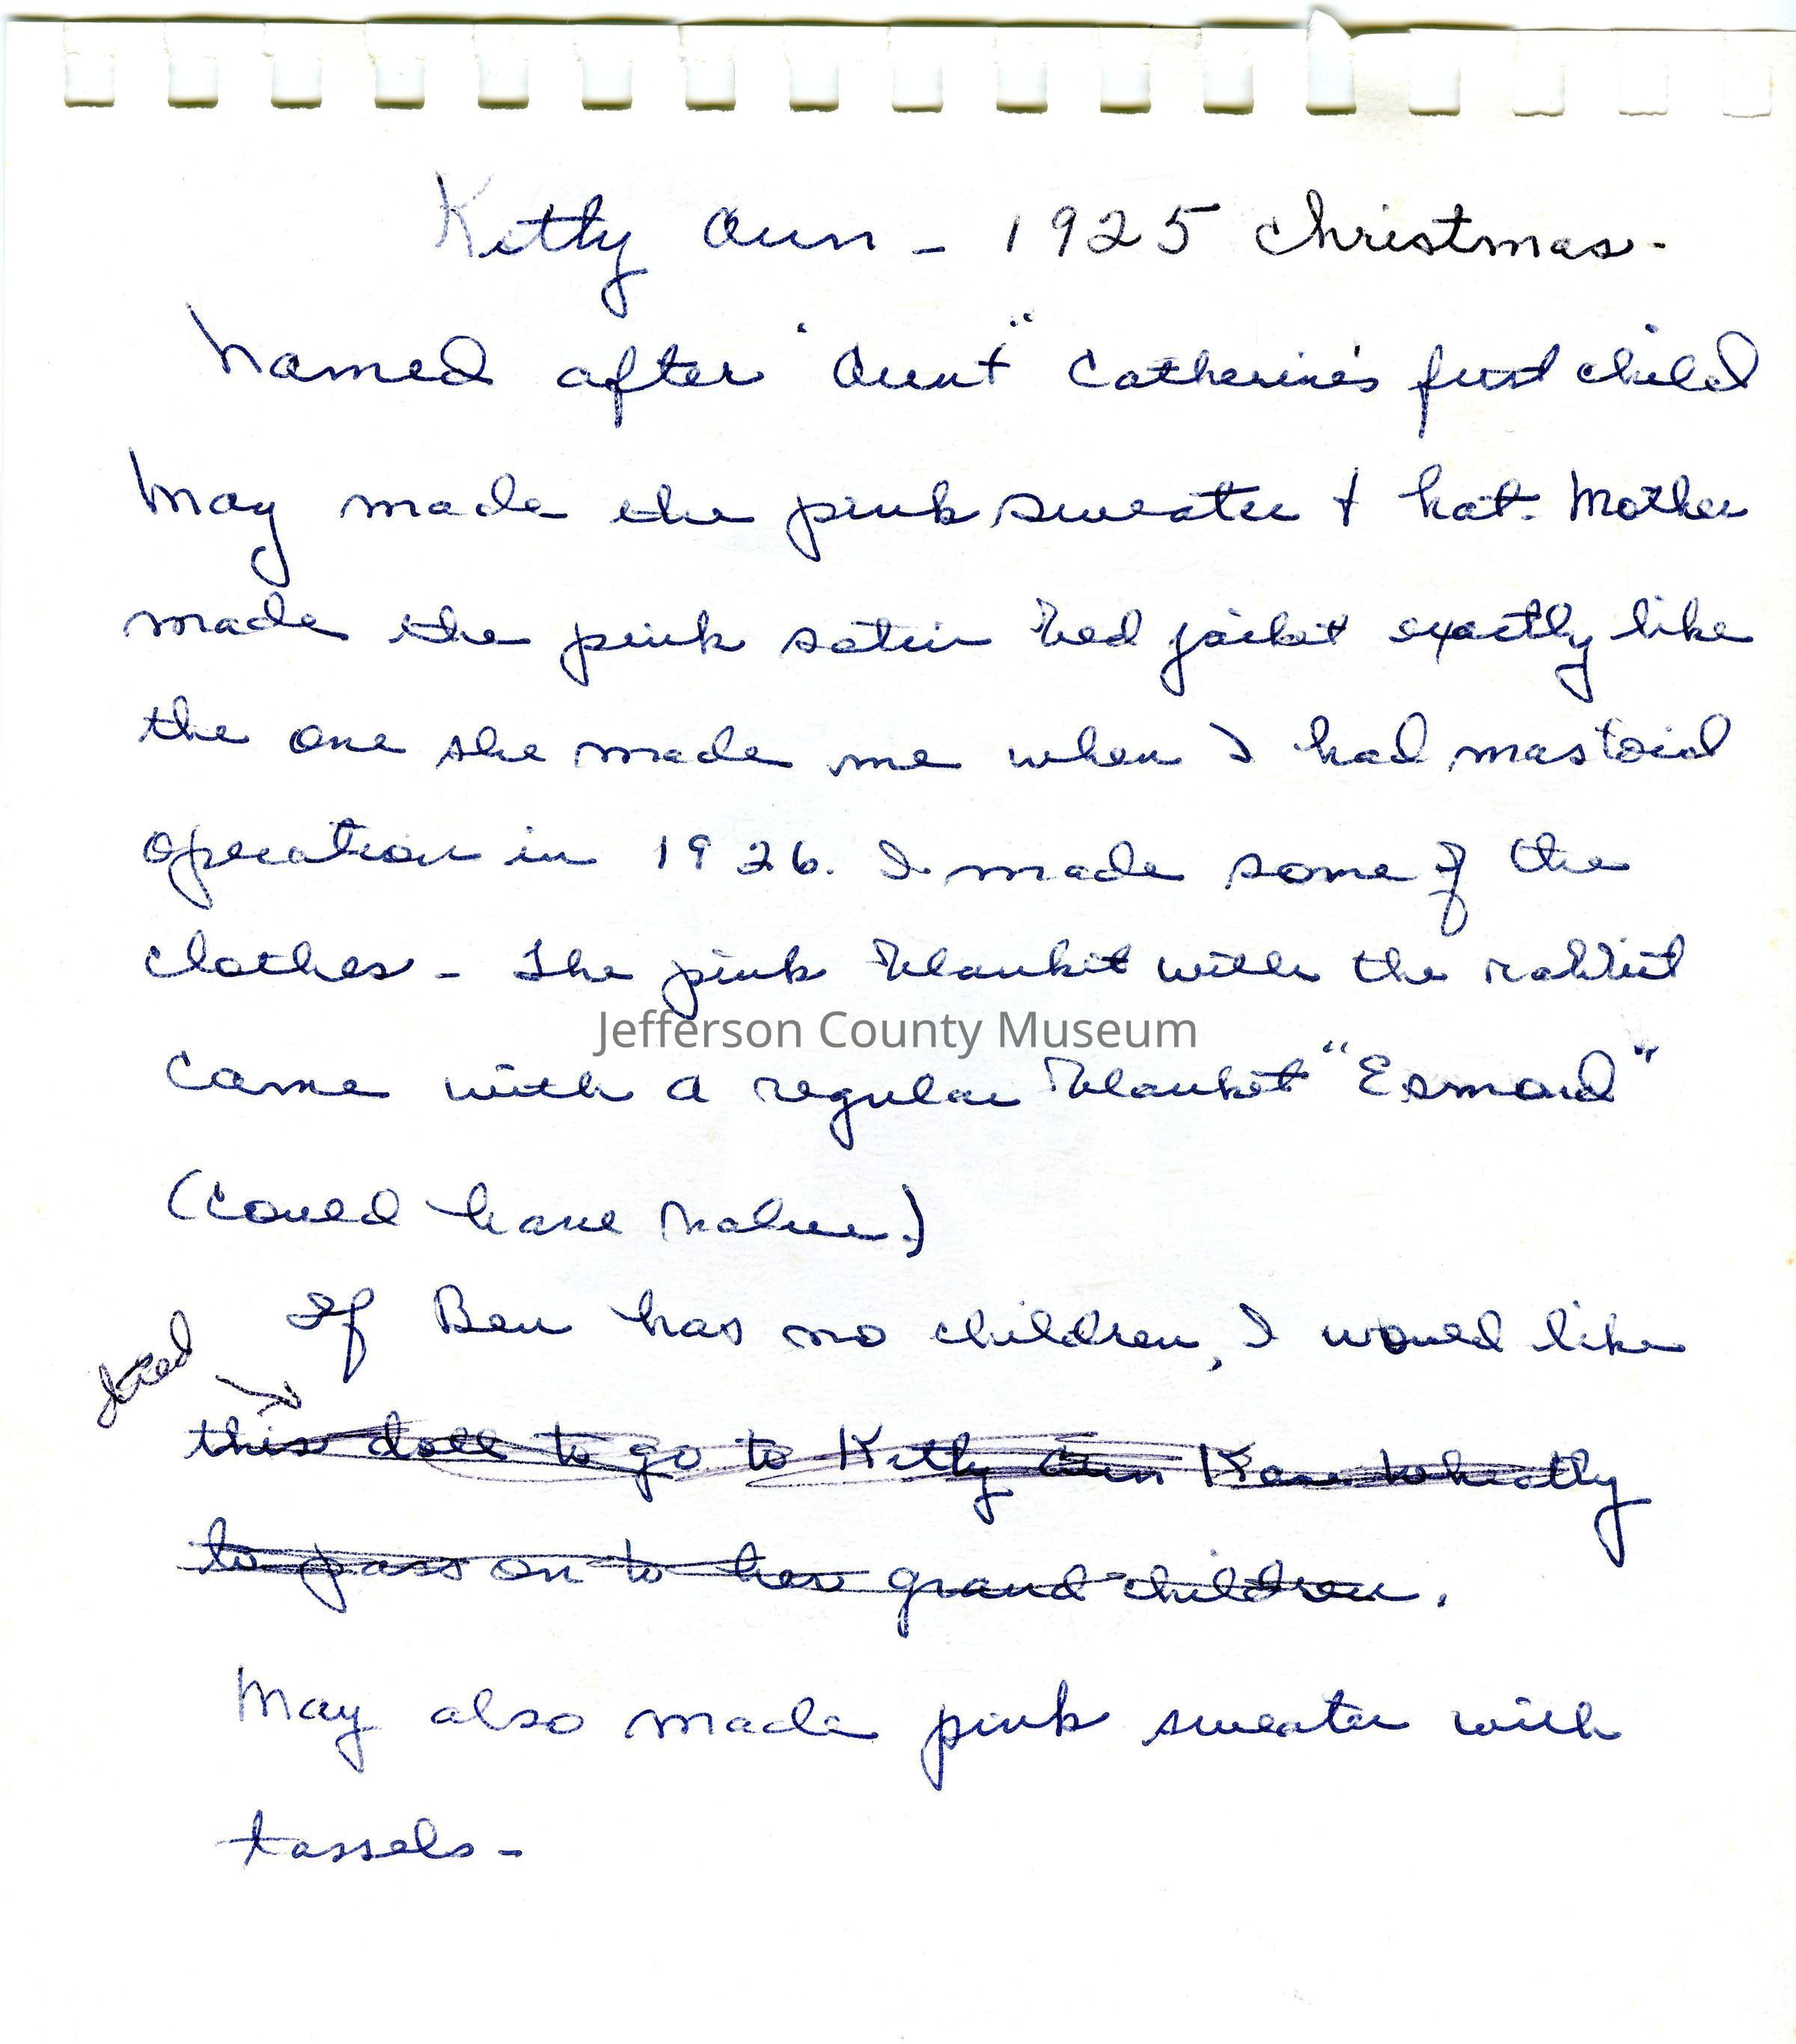 Kitty Ann - 1925 Christmas -
Named after "Aunt" Catherine's first child
May made the pink sweater + hat. Mother
made the pink satin bed jacket exactly like
the one she made me when I had mastoid
operation in 1926. I made some of the
clothes - The pink blanket with the rabbit
Jefferson County Museum
came with a regular blanket "Esmond"
(Could have value.)
If Ben has no children, I would like
this doll to go to Kitty Ann Kane Wheatly
to pass on to her grandchildren.
May also made pink sweater with
tassels -